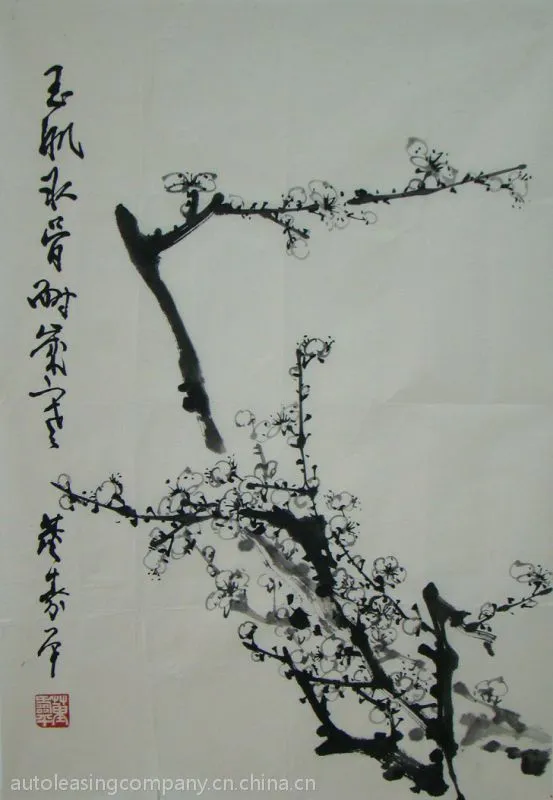 玉肌冰骨耐岁寒
董寿平
autoleasingcompany.cn.china.cn